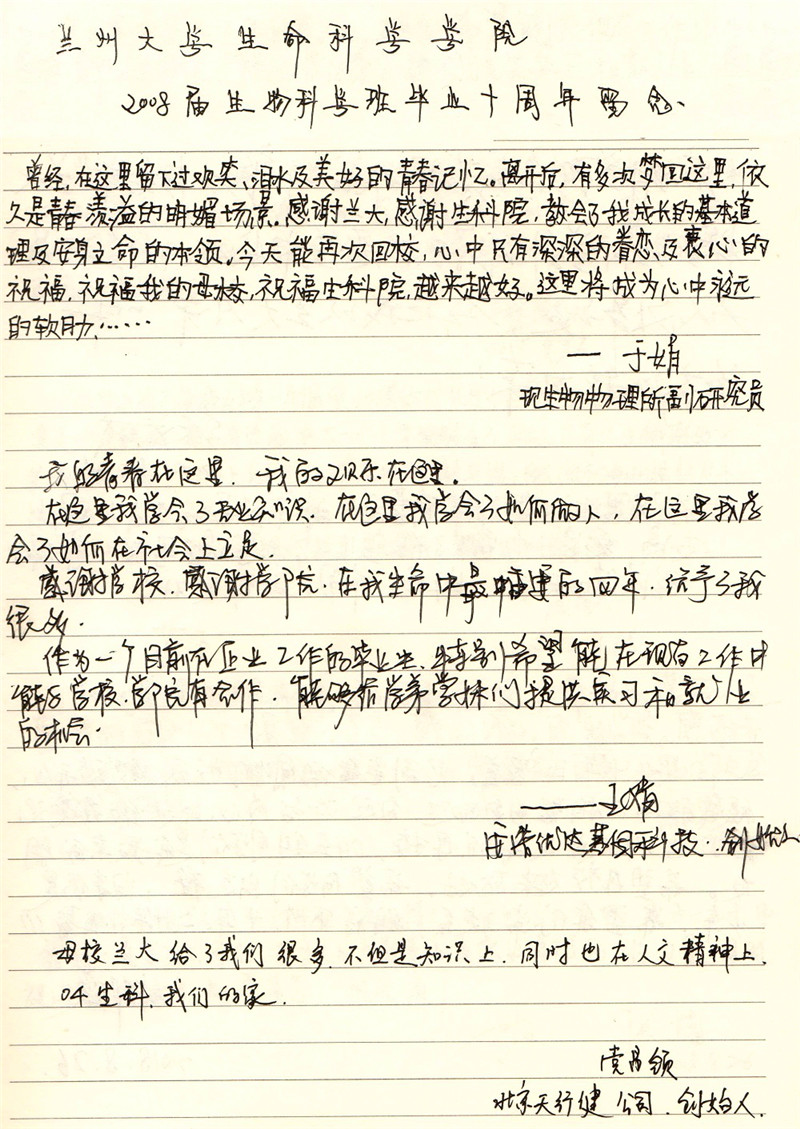 兰州大学生命科学学院
2008届生物科学班毕业十周年留念
曾经,在这里留下过欢笑、泪水及美好的青春记忆。离开后,有多次梦回这里,依
久是青春羡溢的明媚场景。感谢兰大,感谢生科院,教会了我成长的基本道
理及安身立命的本领。今天能再次回校,心中只有深深的眷恋及衷心的
祝福,祝福我的母校,祝福生科院,越来越好。这里将成为心中永远
的软肋……
— 于娟
现生物物理所副研究员
我的青春在这里. 我的欢乐在这里.
在这里我学会了专业知识. 在这里我学会了如何做人, 在这里我学
会了如何在社会上立足.
感谢学校. 感谢学院. 在我生命中最重要的四年. 给予了我
很多.
作为一个目前在企业工作的毕业生. 特别希望能在现有工作中
能与学校.学院有合作. 能够给学弟学妹们提供实习和就业
的机会.
——王娟
优达基因科技. 创始人
母校兰大给了我们很多. 不但是知识上. 同时也在人文精神上.
04生科. 我们的家.
党昌领
北京天行健公司. 创始人.